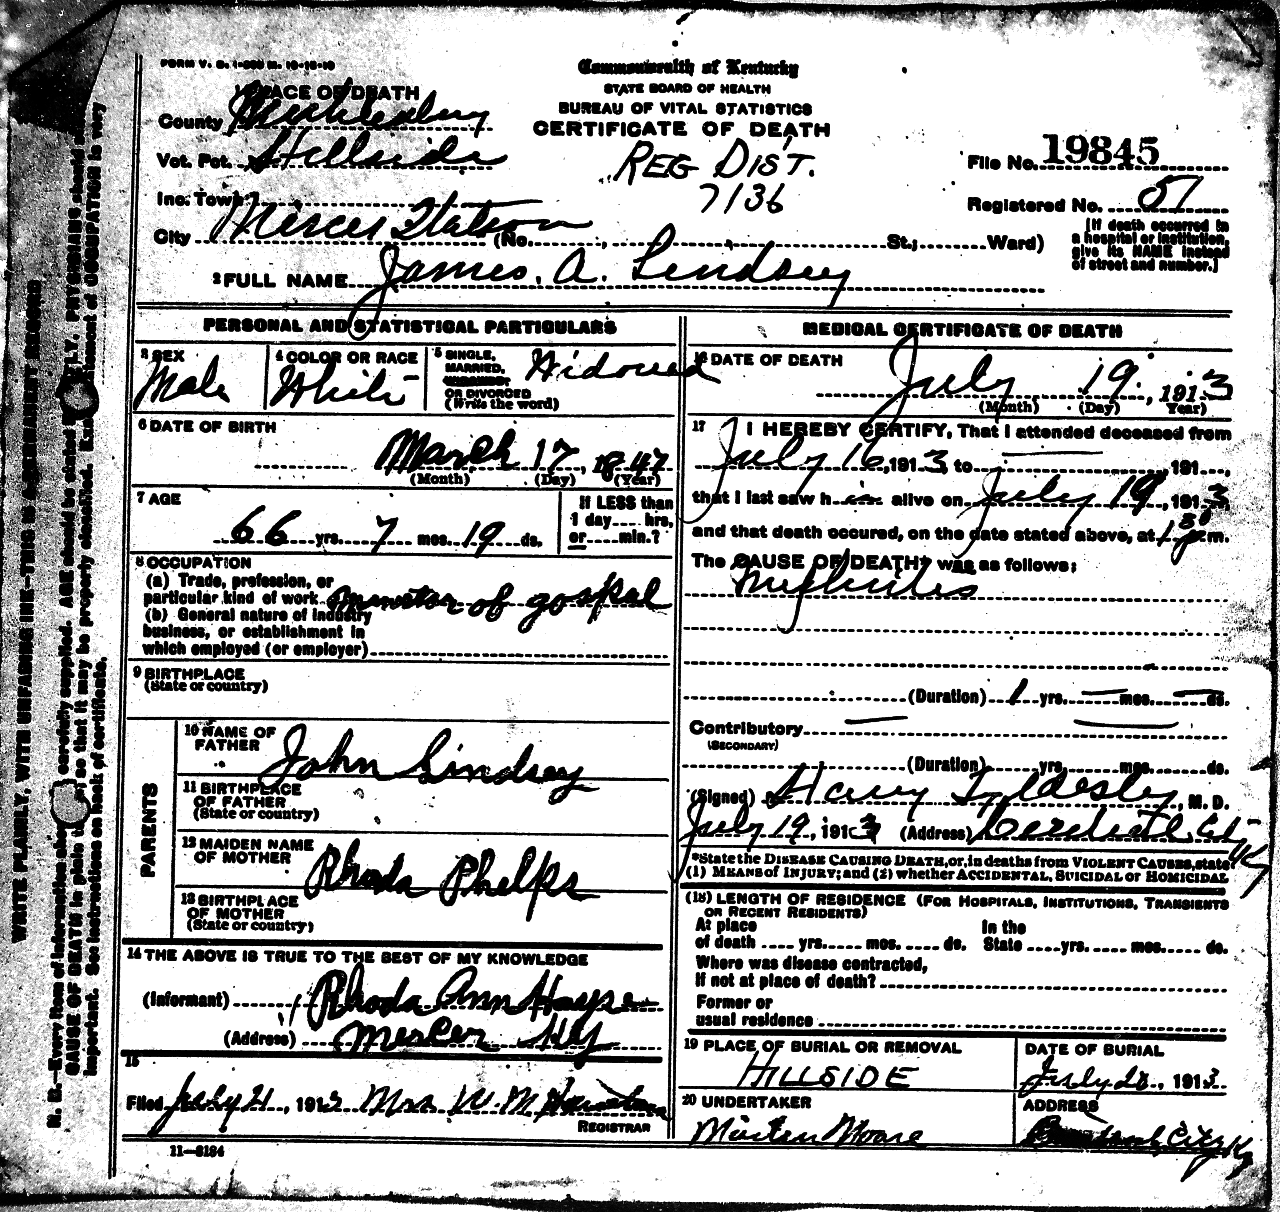 FORM V. S.
Commonwealth of Kentucky
STATE BOARD OF HEALTH
BUREAU OF VITAL STATISTICS
CERTIFICATE OF DEATH
REG DIST.
7136
File No. 19845
Registered No. 51
[If death occurred in
a hospital or institution,
give its NAME instead
of street and number.]
1 PLACE OF DEATH
County Muhlenberg
Vot. Pct. Hillside
Inc. Town
City Mercer Station (No. , St.; Ward)
2 FULL NAME James. A. Lindsey
PERSONAL AND STATISTICAL PARTICULARS
3 SEX
Male
4 COLOR OR RACE
White
5 SINGLE,
MARRIED,
WIDOWED
OR DIVORCED
(Write the word)
Widowed
6 DATE OF BIRTH
March 17, 1847
(Month) (Day) (Year)
7 AGE
66 yrs. 7 mos. 19 ds.
If LESS than
1 day.... hrs,
or.....min.?
8 OCCUPATION
(a) Trade, profession, or
particular kind of work minister of gospal
(b) General nature of industry
business, or establishment in
which employed (or employer)
9 BIRTHPLACE
(State or country)
PARENTS
10 NAME OF
FATHER
John Lindsey
11 BIRTHPLACE
OF FATHER
(State or country)
12 MAIDEN NAME
OF MOTHER
Rhoda Phelps
13 BIRTHPLACE
OF MOTHER
(State or country)
14 THE ABOVE IS TRUE TO THE BEST OF MY KNOWLEDGE
(Informant) Rhoda Ann Hayse
(Address) Mercer Ky
15
Filed July 21, 1913 Mrs W. M.
REGISTRAR
11—8184
MEDICAL CERTIFICATE OF DEATH
16 DATE OF DEATH
July 19, 1913
(Month) (Day) Year)
17 I HEREBY CERTIFY, That I attended deceased from
July 16, 1913, to ,191...,
that I last saw h im alive on July 19, 1913
and that death occured, on the date stated above, at 1 30 p m.
The CAUSE OF DEATH* was as follows;
Nephritis
(Duration) 1 yrs. mos. ds.
Contributory
(SECONDARY)
(Duration) yrs. mos. ds.
(Signed) Harry Tyldesley, M. D.
July 19, 1913 (Address) Central City Ky
*State the DISEASE CAUSING DEATH, or, in deaths from VIOLENT CAUSES, state
(1) MEANS of INJURY; and (2) whether ACCIDENTAL, SUICIDAL or HOMICIDAL
(18) LENGTH OF RESIDENCE (FOR HOSPITALS, INSTITUTIONS, TRANSIENTS
OR RECENT RESIDENTS)
At place In the
of death .... yrs..... mos. .... ds. State ....yrs. .... mos.... ds.
Where was disease contracted,
If not at place of death?
Former or
usual residence
19 PLACE OF BURIAL OR REMOVAL
HILLSIDE
DATE OF BURIAL
July 20, 1913
20 UNDERTAKER
Martin Moore
ADDRESS
City Ky
WRITE PLAINLY, WITH UNFADING INK—THIS IS A PERMANENT RECORD
N. B.—Every item of information should be carefully supplied. AGE should be stated EXACTLY. PHYSICIANS should
CAUSE OF DEATH in plain so that it may be properly classified. Exact statement of OCCUPATION is very
important. See instructions on back of certificate.